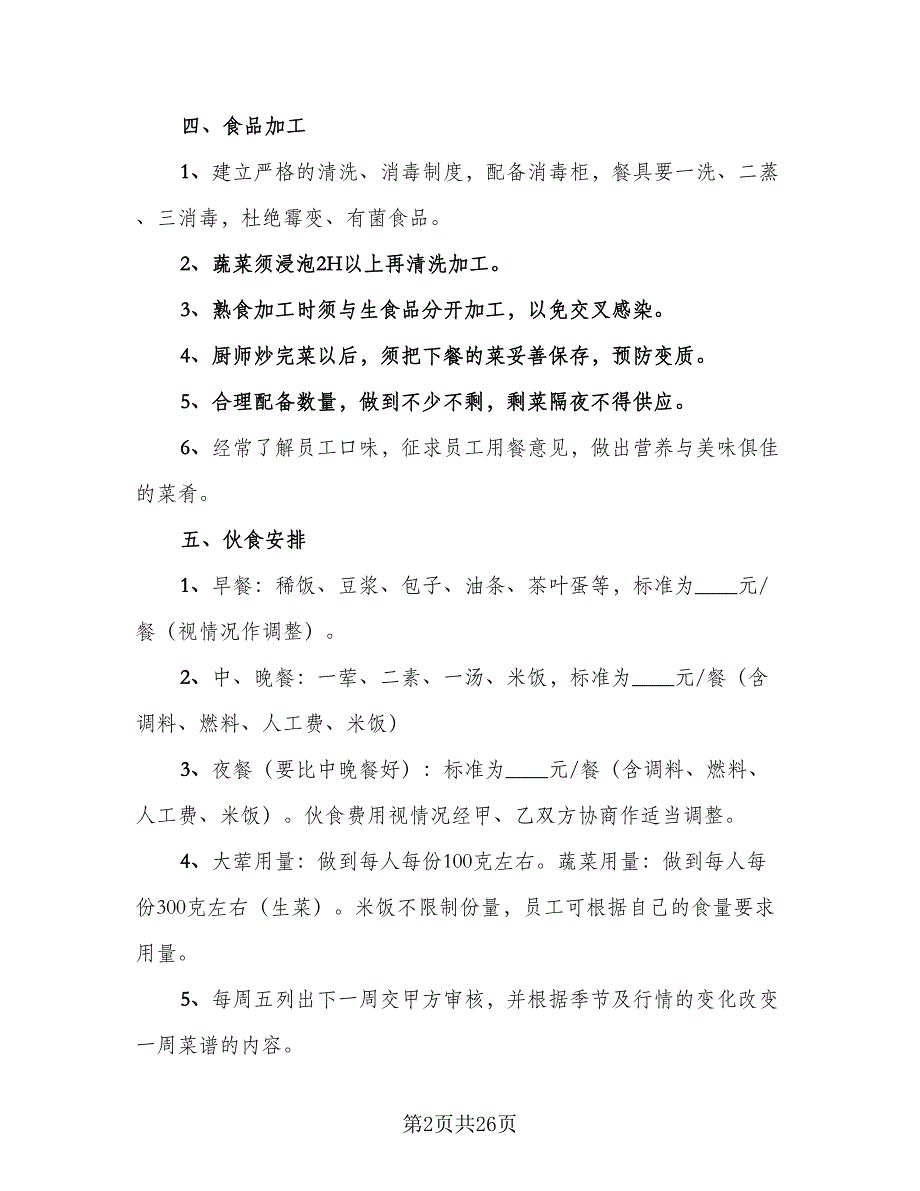 四、食品加工
1、建立严格的清洗、消毒制度，配备消毒柜，餐具要一洗、二蒸
、三消毒，杜绝霉变、有菌食品。
2、蔬菜须浸泡2H以上再清洗加工。
3、熟食加工时须与生食品分开加工，以免交叉感染。
4、厨师炒完菜以后，须把下餐的菜妥善保存，预防变质。
5、合理配备数量，做到不少不剩，剩菜隔夜不得供应。
6、经常了解员工口味，征求员工用餐意见，做出营养与美味俱佳
的菜肴。
五、伙食安排
1、早餐：稀饭、豆浆、包子、油条、茶叶蛋等，标准为____元/
餐（视情况作调整）。
2、中、晚餐：一荤、二素、一汤、米饭，标准为____元/餐（含
调料、燃料、人工费、米饭）
3、夜餐（要比中晚餐好）：标准为____元/餐（含调料、燃料、
人工费、米饭）。伙食费用视情况经甲、乙双方协商作适当调整。
4、大荤用量：做到每人每份100克左右。蔬菜用量：做到每人每
份300克左右（生菜）。米饭不限制份量，员工可根据自己的食量要求
用量。
5、每周五列出下一周交甲方审核，并根据季节及行情的变化改变
一周菜谱的内容。
第2页共26页